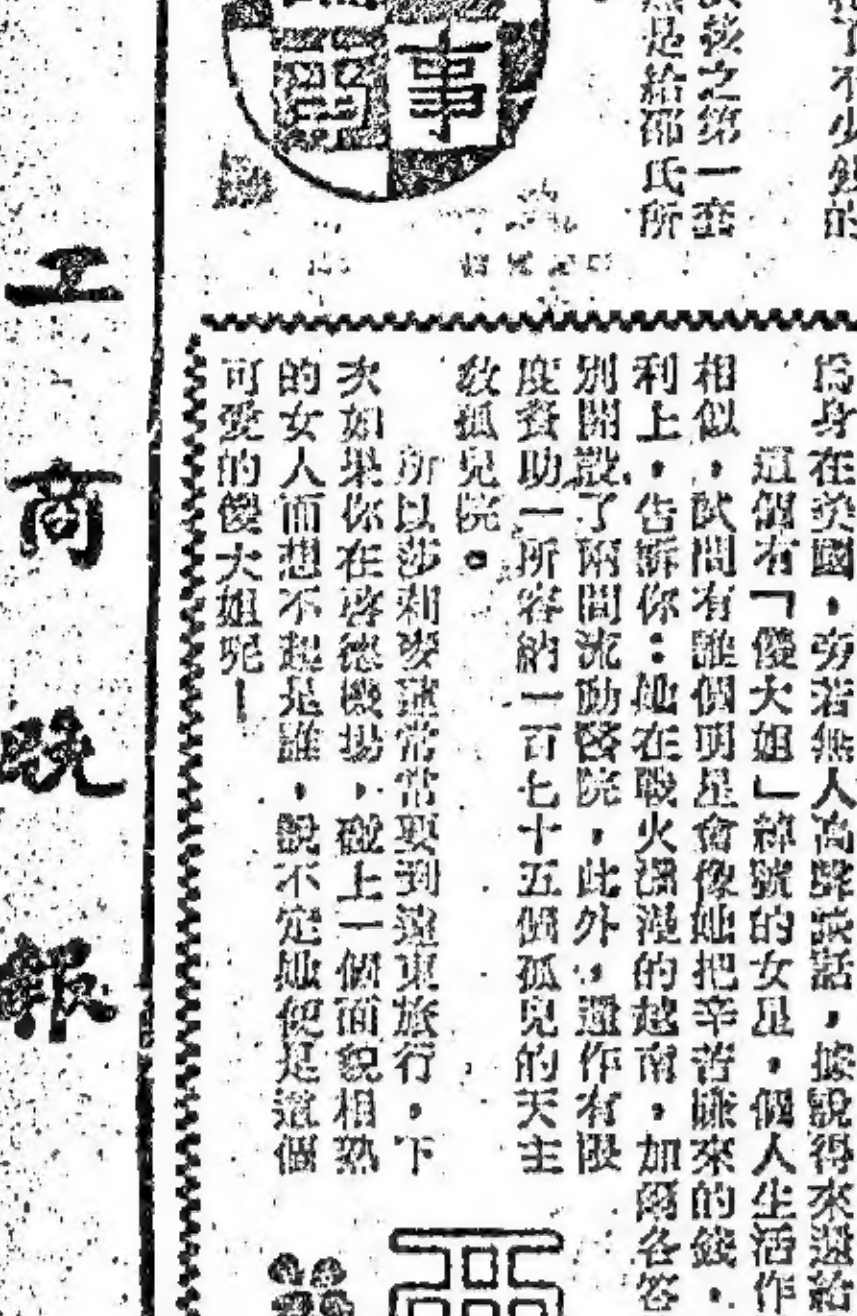 了不少錢的
孩之第一套
是給邵氏所
事
為身在美國，旁若無人高聲談話，按說得來還給
這個有「傻大姐」綽號的女星，個人生活作
相似，試問有誰個明星會像她把辛苦賺來的錢，
利上，告訴你：她在戰火瀰漫的越南，加爾各答
別開設了兩間流動醫院，此外，還作有限
度資助一所容納一百七十五個孤兒的天主
教孤兒院。
所以莎莉麥蓮常常要到遠東旅行，下
次如果你在啓德機場，碰上一個面貌相熟
的女人而想不起是誰，說不定她便是這個
可愛的傻大姐呢！
工商晚報